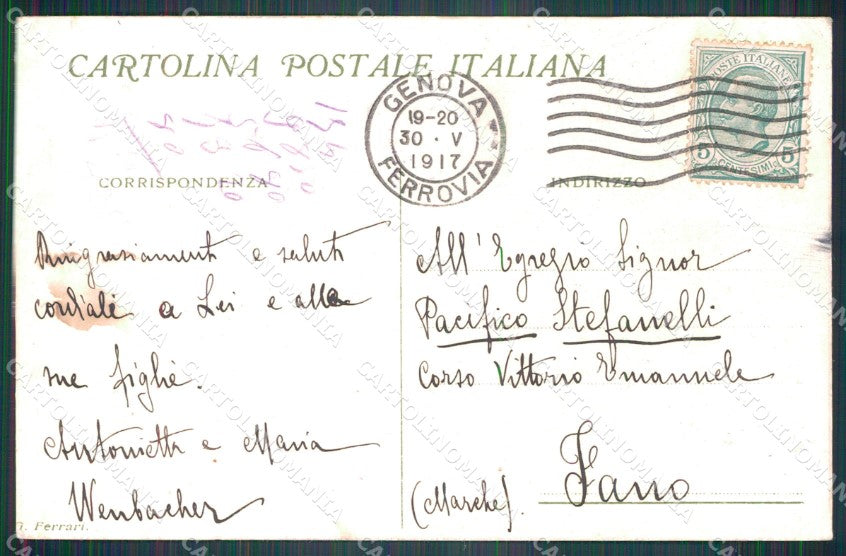 CARTOLINA POSTALE ITALIANA
GENOVA
19-20
30 · V
1917
FERROVIA
POSTE ITALIANE
5 CENTESIMI 5
CORRISPONDENZA
INDIRIZZO
Ringraziamenti e saluti
cordiali a Lei e alle
sue figlie.
Antonietta e Maria
Wenbacher
G. Ferrari.
All' Egregio Signor
Pacifico Stefanelli
Corso Vittorio Emanuele
Fano
(Marche).
CARTOLINOMANIA